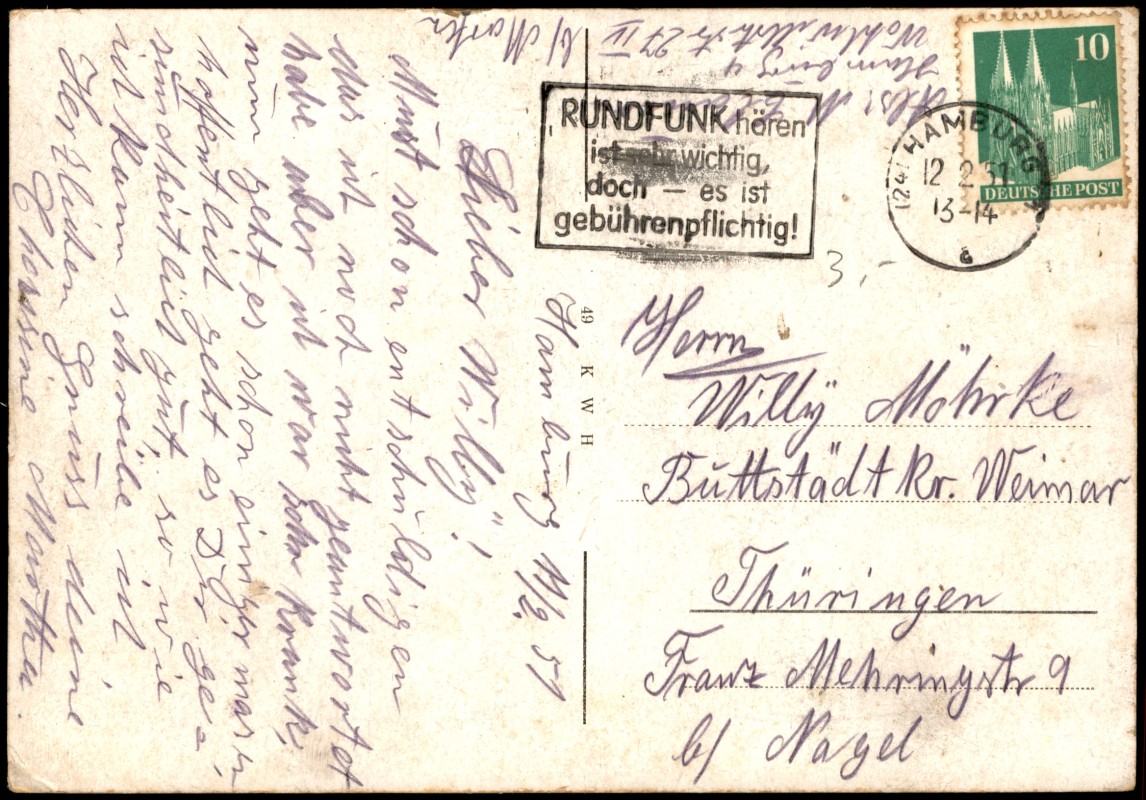 Abs: M.
Hamburg 4
Wohlwillstr. 27 IV
b/ Marten
10
DEUTSCHE POST
(24a) HAMBURG
12.2.51
13-14
a
RUNDFUNK hören
ist sehr wichtig,
doch — es ist
gebührenpflichtig!
3,-
49 K W H
Hamburg 11/2. 51
Lieber Willy"!
Must schon entschuldigen
das ich noch nicht geantwortet
habe aber ich war sehr krank,
nun geht es schon einigermassen
hoffentlich geht es Dir ge=
sundheitlich gut, so wie
ich kann schreibe ich
Herzlichen Gruss deine
Cousine Martha.
Herrn
Willy Möhrke
Buttstädt Kr. Weimar
Thüringen
Franz Mehringstr 9
b/ Nagel